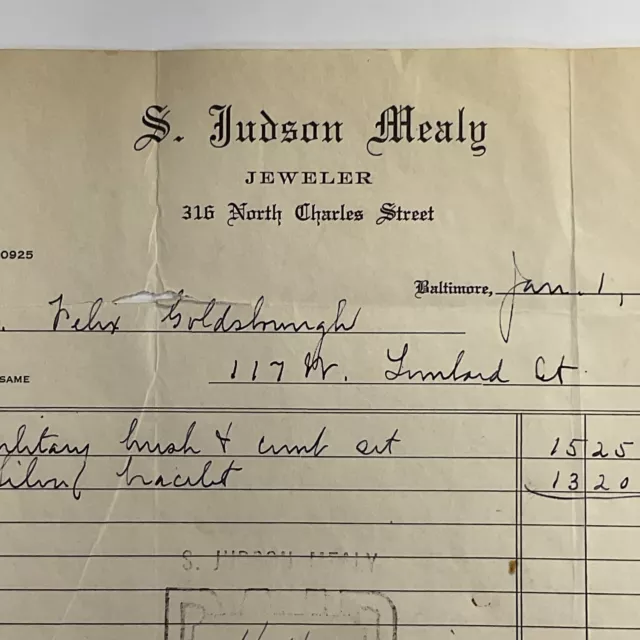 S. Judson Mealy
JEWELER
316 North Charles Street
0925
Baltimore, Jan. 1,
Felix Goldsburough
117 W. Lombard St.
SAME
military brush & comb set 15 25
silver bracelet 13 20
S. JUDSON MEALY
PAID